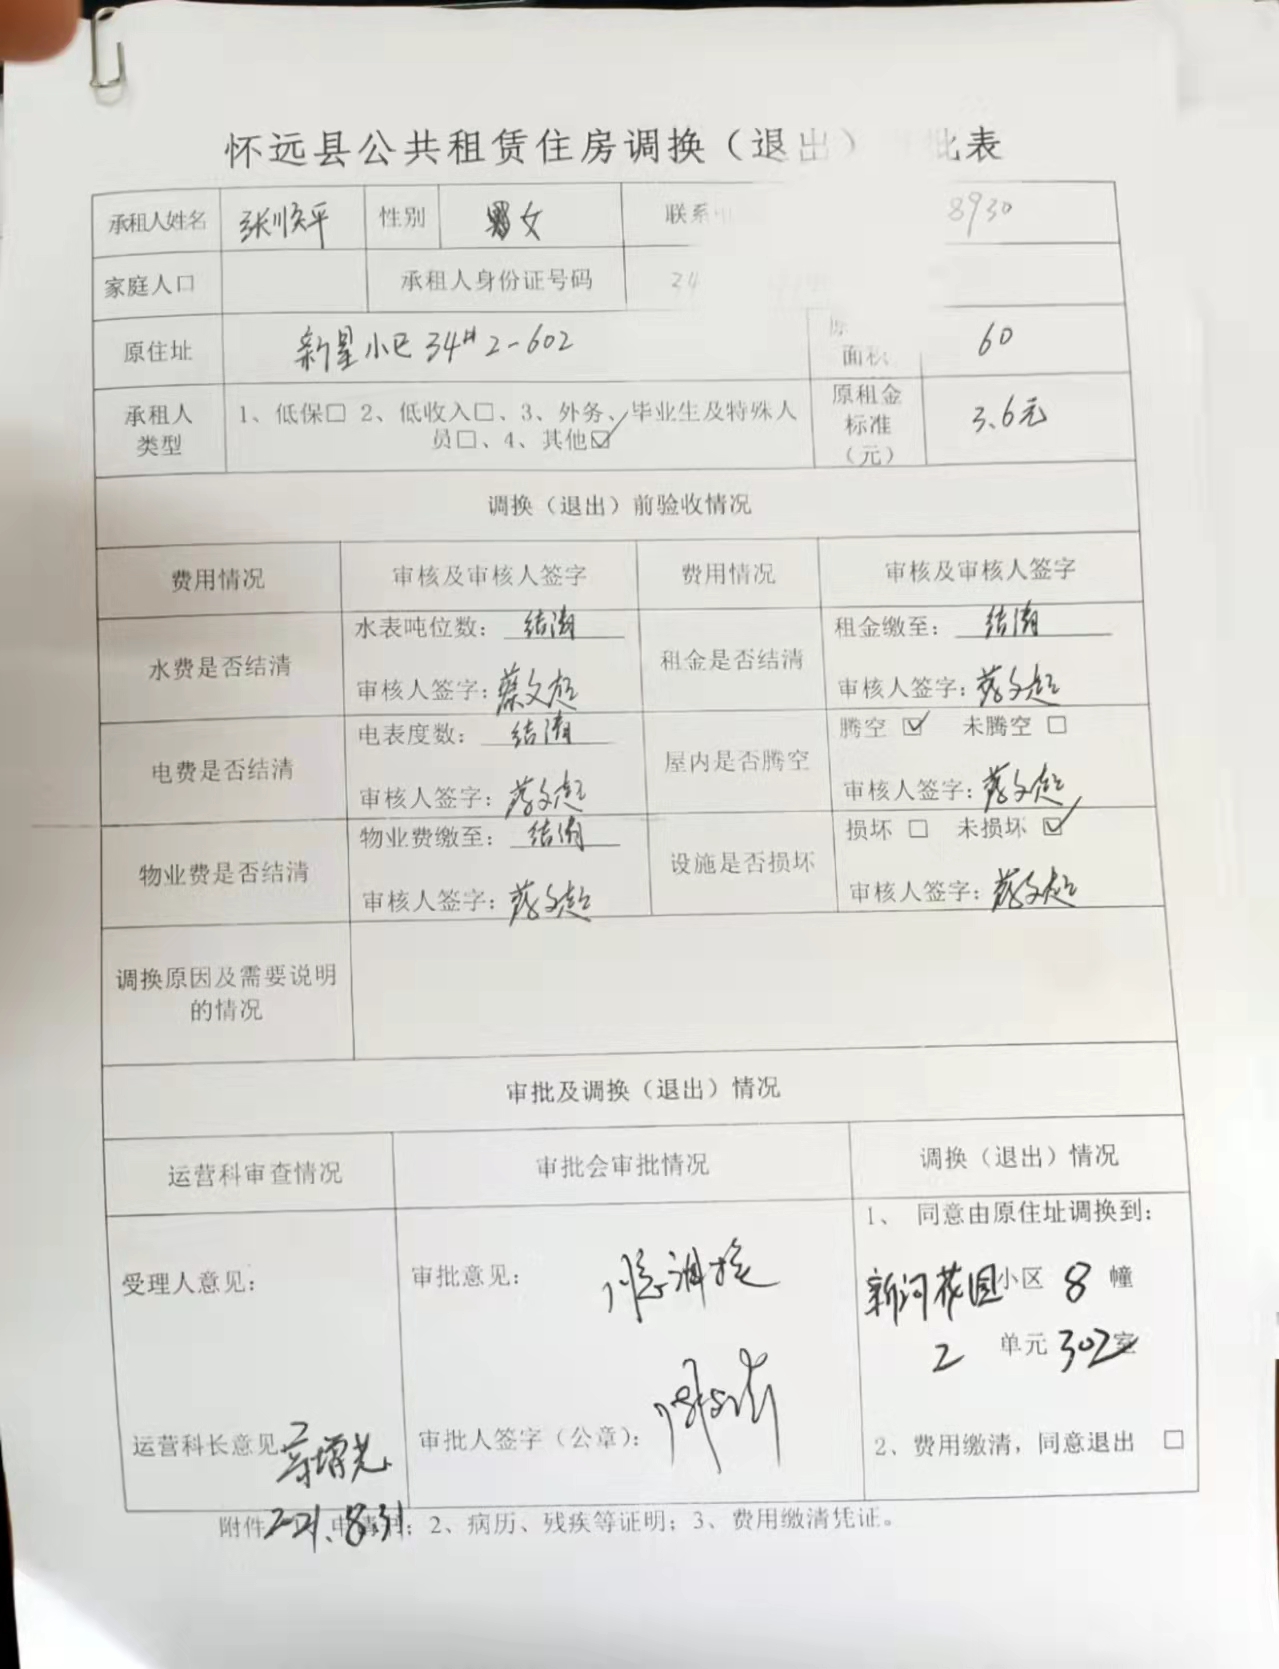 怀远县公共租赁住房调换（退出） 批表
承租人姓名 张顺平 性别 女 联系 8930
家庭人口 承租人身份证号码 34
原住址 新星小区34# 2-602 原 面积 60
承租人类型 1、低保□ 2、低收入□、3、外务、毕业生及特殊人
员□、4、其他☑ 原租金标准（元） 3.6元
调换（退出）前验收情况
费用情况 审核及审核人签字 费用情况 审核及审核人签字
水费是否结清 水表吨位数：结清 租金是否结清 租金缴至：结清
审核人签字：蔡文超 审核人签字：蔡文超
电费是否结清 电表度数：结清 屋内是否腾空 腾空 ☑ 未腾空 □
审核人签字：蔡文超 审核人签字：蔡文超
物业费是否结清 物业费缴至：结清 设施是否损坏 损坏 □ 未损坏 ☑
审核人签字：蔡文超 审核人签字：蔡文超
调换原因及需要说明
的情况
审批及调换（退出）情况
运营科审查情况 审批会审批情况 调换（退出）情况
1、 同意由原住址调换到：
受理人意见： 审批意见： 新河花园小区 8 幢
2 单元 302室
运营科长意见 审批人签字（公章）： 2、费用缴清，同意退出 □
附件 2021.8.31 ；2、病历、残疾等证明；3、费用缴清凭证。